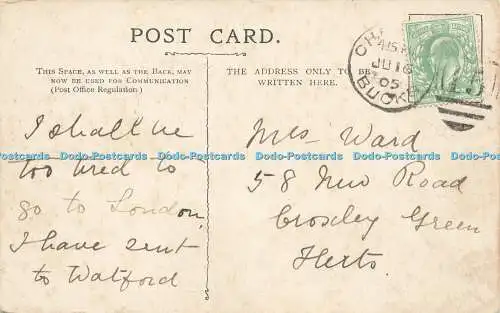 POST CARD.
THIS SPACE, AS WELL AS THE BACK, MAY
NOW BE USED FOR COMMUNICATION
(Post Office Regulation)
THE ADDRESS ONLY TO BE
WRITTEN HERE.
JU 16
05
BUCK
I shall be
too tired to
go to London,
I have sent
to Watford
Mrs Ward
58 New Road
Croxley Green
Herts.
Dodo-Postcards Dodo-Postcards Dodo-Postcards Dodo-Postcards